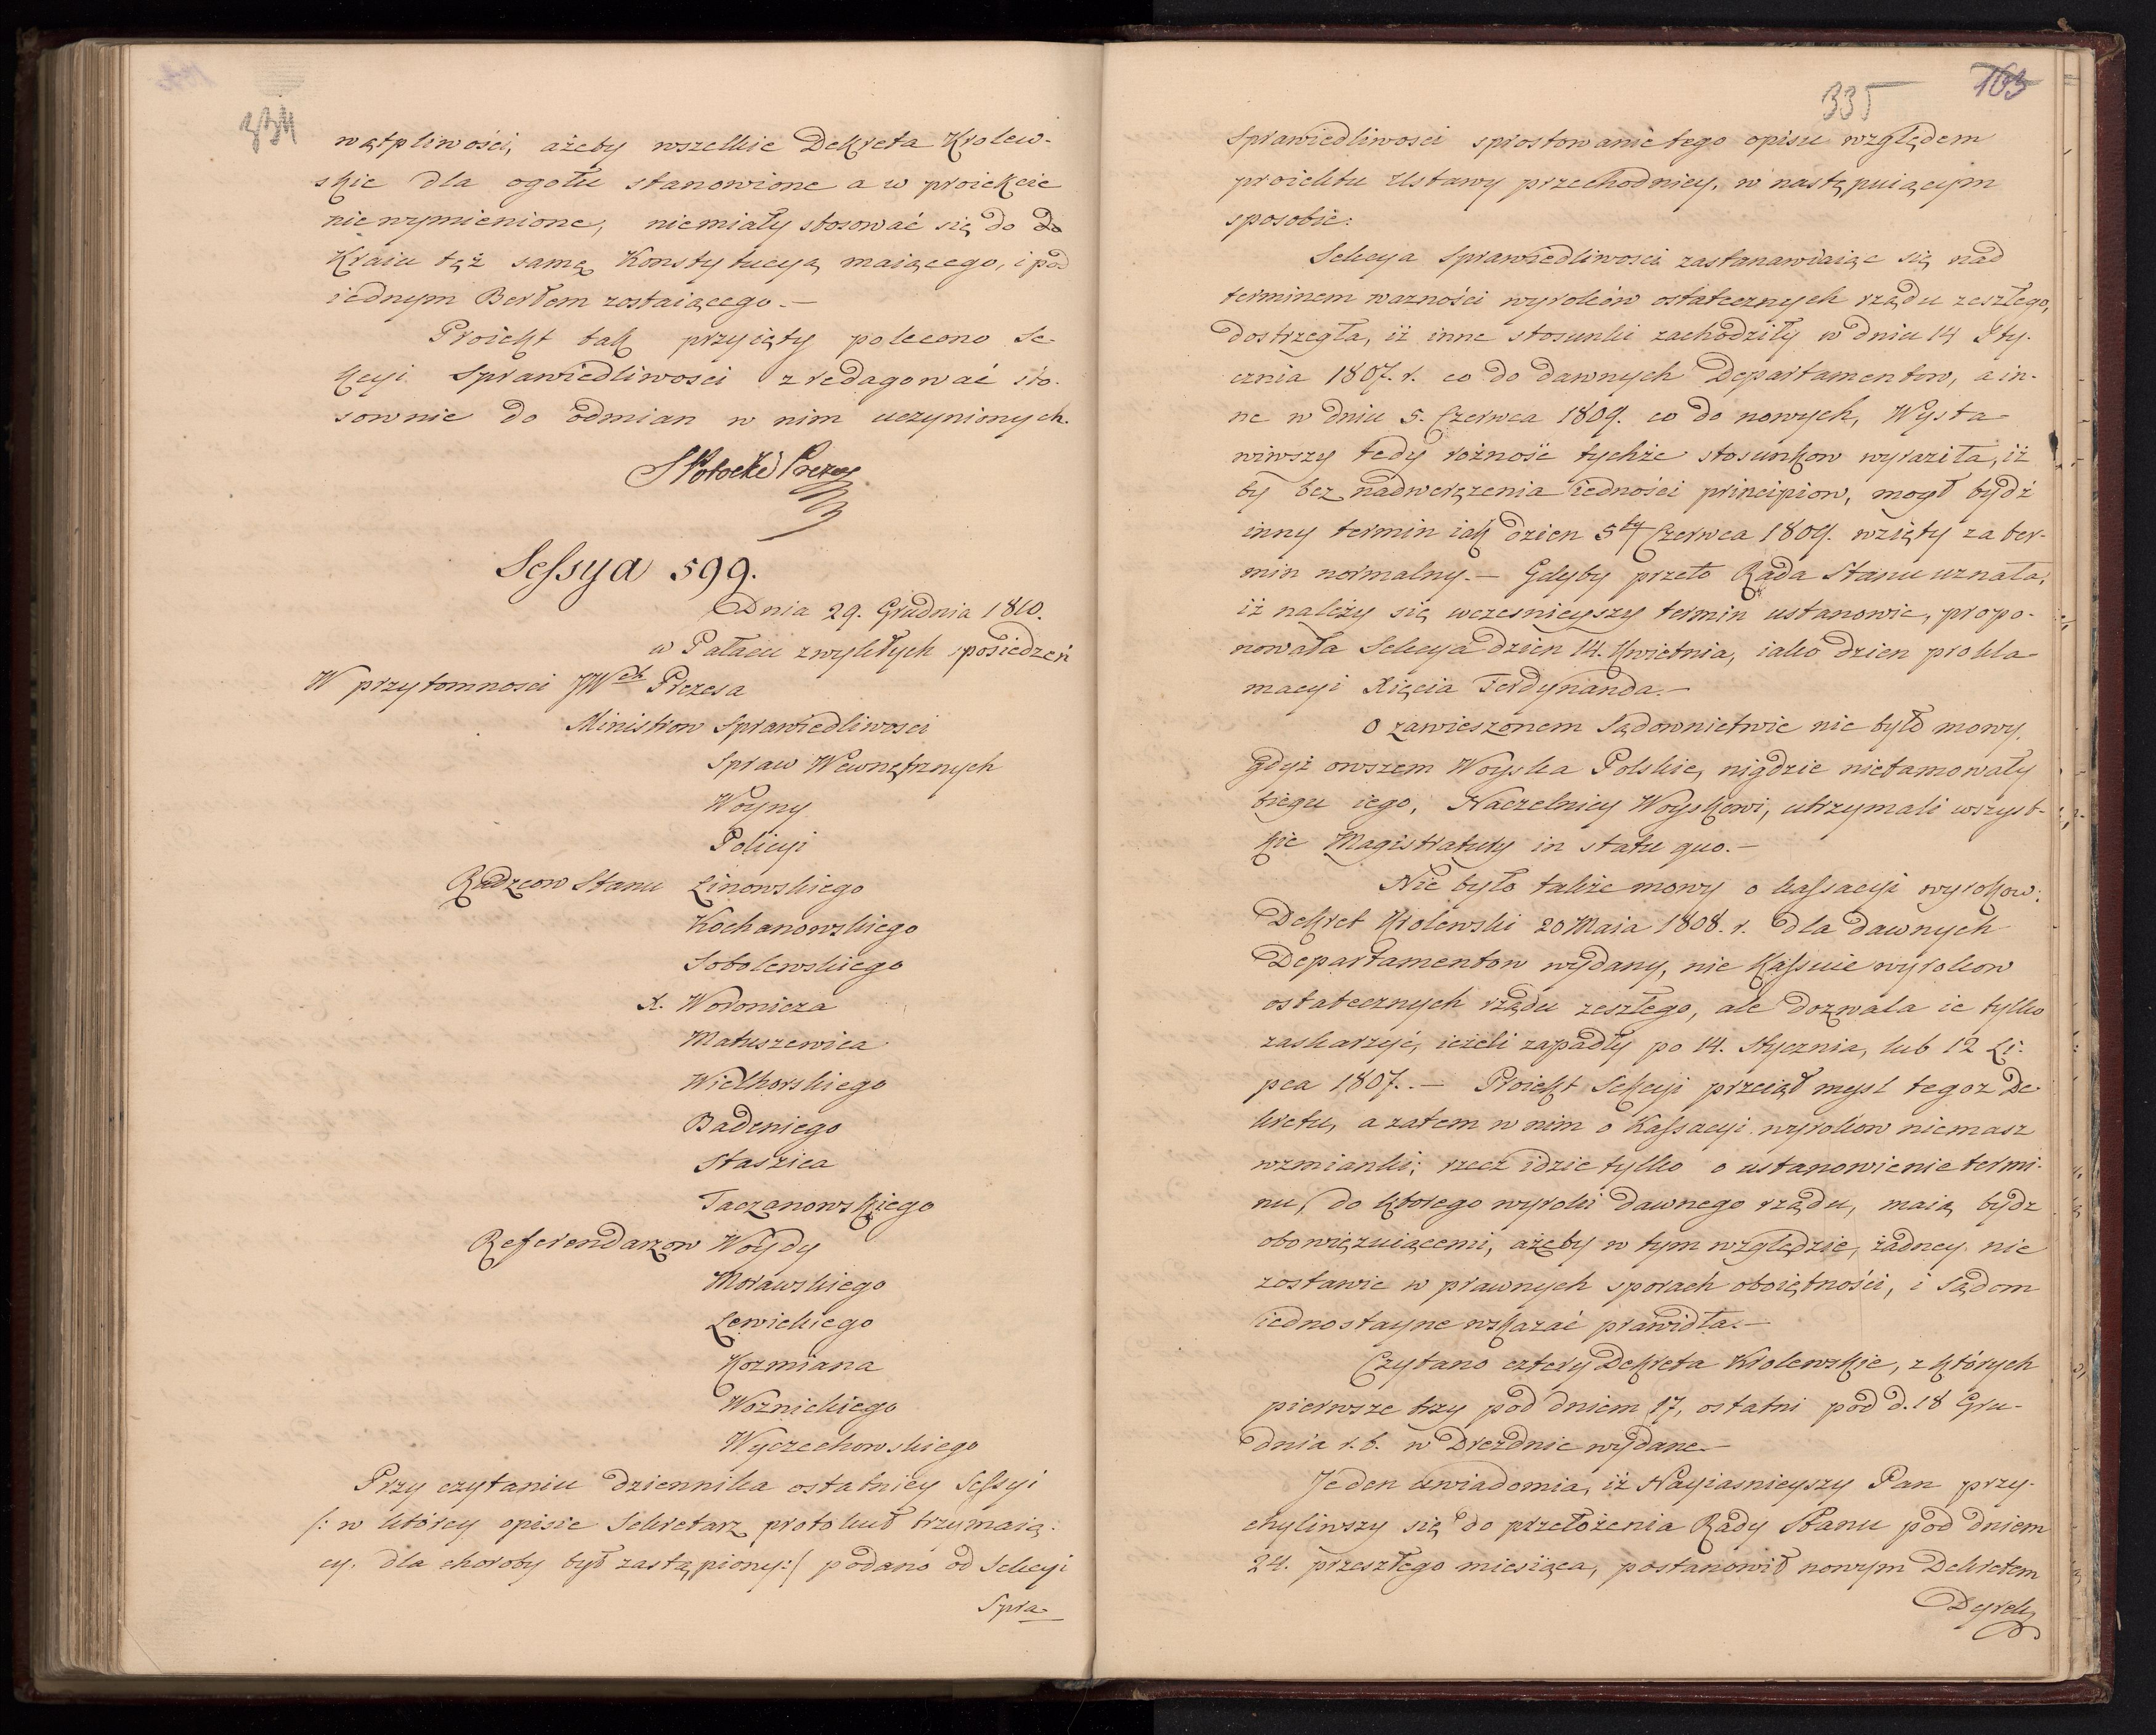 334
wątpliwości, ażeby wszelkie Dekreta Krolew-
skie dla ogołu stanowione a w proiekcie
niewymienione, niemiały stosować się do do
Kraiu tęż samę Konstytucyą maiącego, i pod
iednym Berłem zostaiącego.—
Proiekt tak przyięty polecono Se-
kcyi Sprawiedliwosci zredagować sto-
sownie do odmian w nim uczynionych.
SPotocki Prezes
Sessya 599.
Dnia 29. Grudnia 1810.
w Pałacu zwykłych posiedzeń
W przytomnosci JWch Prezesa
Ministrow Sprawiedliwosci
Spraw Wewnętrznych
Woyny
Policyi
Radzcow Stanu Linowskiego
Kochanowskiego
Sobolewskiego
X. Woronicza
Matuszewica
Wielhorskiego
Badeniego
Staszica
Taczanowskiego
Referendarzow Woydy
Morawskiego
Lewickiego
Kozmiana
Woznickiego
Wyczechowskiego
Przy czytaniu dziennika ostatniey Sessyi
/: w ktorey opisie Sekretarz protokuł trzymaią-
cy, dla choroby był zastąpiony:/ podano od Sekcyi
Spra-
335
163
Sprawiedliwosci sprostowanie tego opisu względem
proiektu Ustawy przechodniey, w następuiącym
sposobie:
Sekcya Sprawiedliwosci zastanawiaiąc się nad
terminem wazności wyroków ostatecznych rządu zeszłego,
dostrzegła, iż inne stosunki zachodziły w dniu 14 Sty-
cznia 1807. r. co do dawnych Departamentow, a in-
ne w dniu 5. Czerwca 1809. co do nowych, Wysta-
wiwszy tedy rożność tychże stosunkow wyraziła, iż
by bez nadwerężenia iedności principiow, mogł bydź
inny termin iak dzien 5ty Czerwca 1809. wzięty za ter-
min normalny.— Gdyby przeto Rada Stanu uznała,
iż należy się wczesnieyszy termin ustanowic, propo-
nowała Sekcya dzien 14. Kwietnia, iako dzien prokla-
macyi Xięcia Ferdynanda.—
O zawieszonem Sądownictwie nie było mowy,
gdyż owszem Woyska Polskie, nigdzie nietamowały
biegu iego, Naczelnicy Woyskowi, utrzymali wszyst-
kie Magistratury in statu quo.—
Nie było także mowy o kassacyi wyrokow;
Dekret Krolewski 20 Maia 1808. r. dla dawnych
Departamentow wydany, nie kassuie wyrokow
ostatecznych rządu zeszłego, ale dozwala ie tylko
zaskarzyć, ieżeli zapadły po 14. Stycznia, lub 12 Li-
pca 1807..— Proiekt Sekcyi przeiął mysl tegoz De-
kretu, a zatem w nim o Kassacyi wyrokow niemasz
wzmianki; rzecz idzie tylko o ustanowienie termi-
nu, do ktorego wyroki dawnego rządu, maią bydz
obowięzuiącemi, ażeby w tym względzie, żadney nie
zostawic w prawnych sporach oboiętności, i Sądom
iednostayne wskazać prawidła.—
Czytano cztery Dekreta Krolewskie, z których
pierwsze trzy pod dniem 17, ostatni pod d. 18 Gru-
dnia r. b. w Dreznie wydane.—
Jeden uwiadomia, iż Nayiasnieyszy Pan przy-
chyliwszy się do przełożenia Rady Stanu pod dniem
24. przeszłego miesiąca, postanowił nowym Dekretem
Dyrek